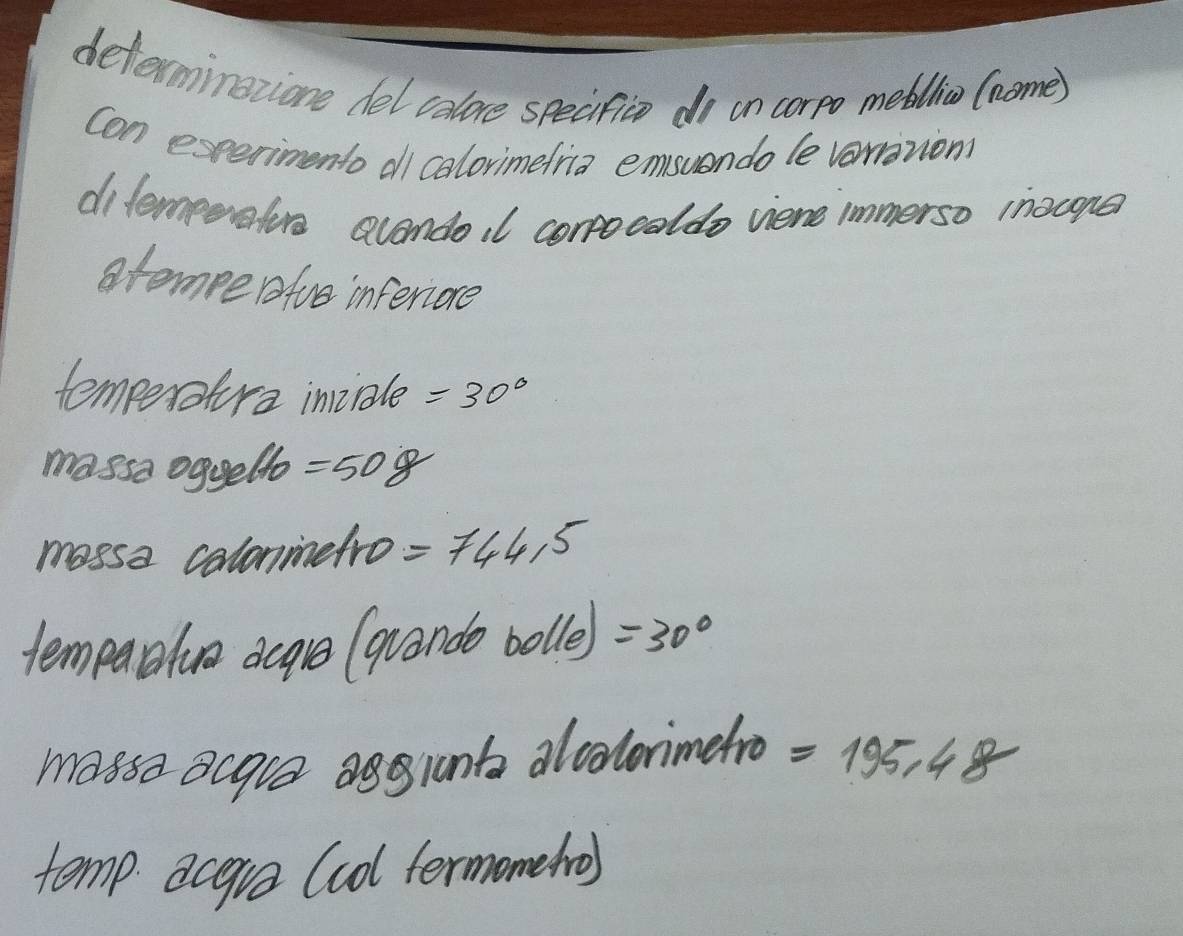 determinazione del calore specifico di un corpo metallico (rame)
con esperimento di calorimetria e misurando le variazioni
di temperatura quando il corpo caldo viene immerso in acqua
a temperatura inferiore
temperatura iniziale = 30°
massa oggetto = 50 g
massa calorimetro = 744,5
temperatura acqua (quando bolle) = 30°
massa acqua aggiunta al calorimetro = 195,4 g
temp. acqua (col termometro)